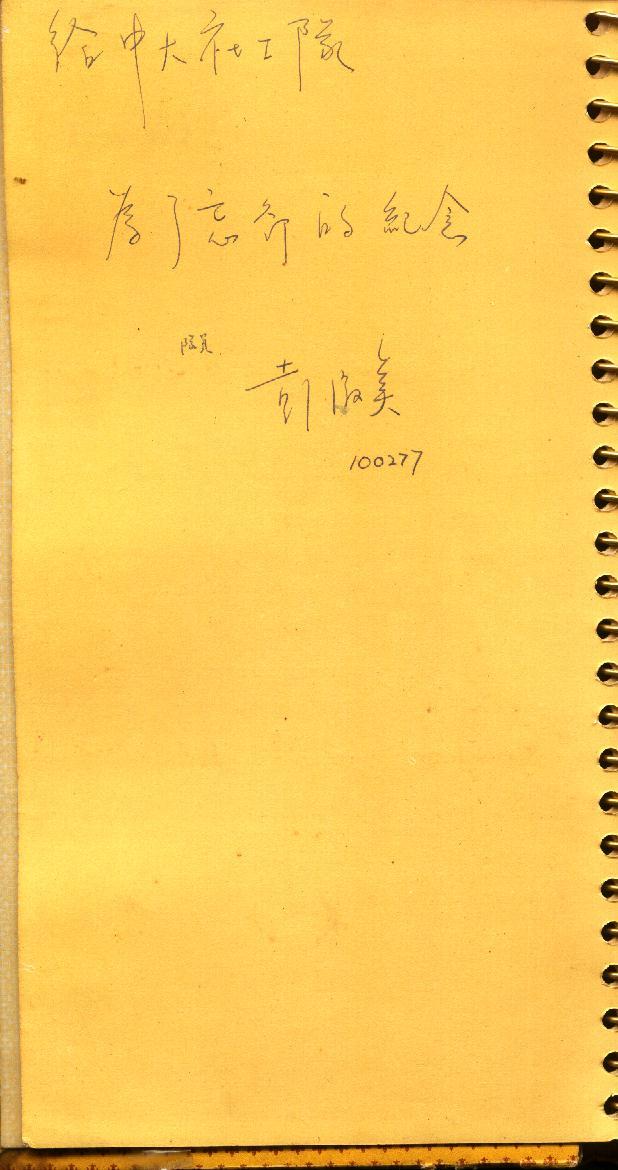 給中大社工隊
為了忘却的紀念
隊員
彭淑美
100277